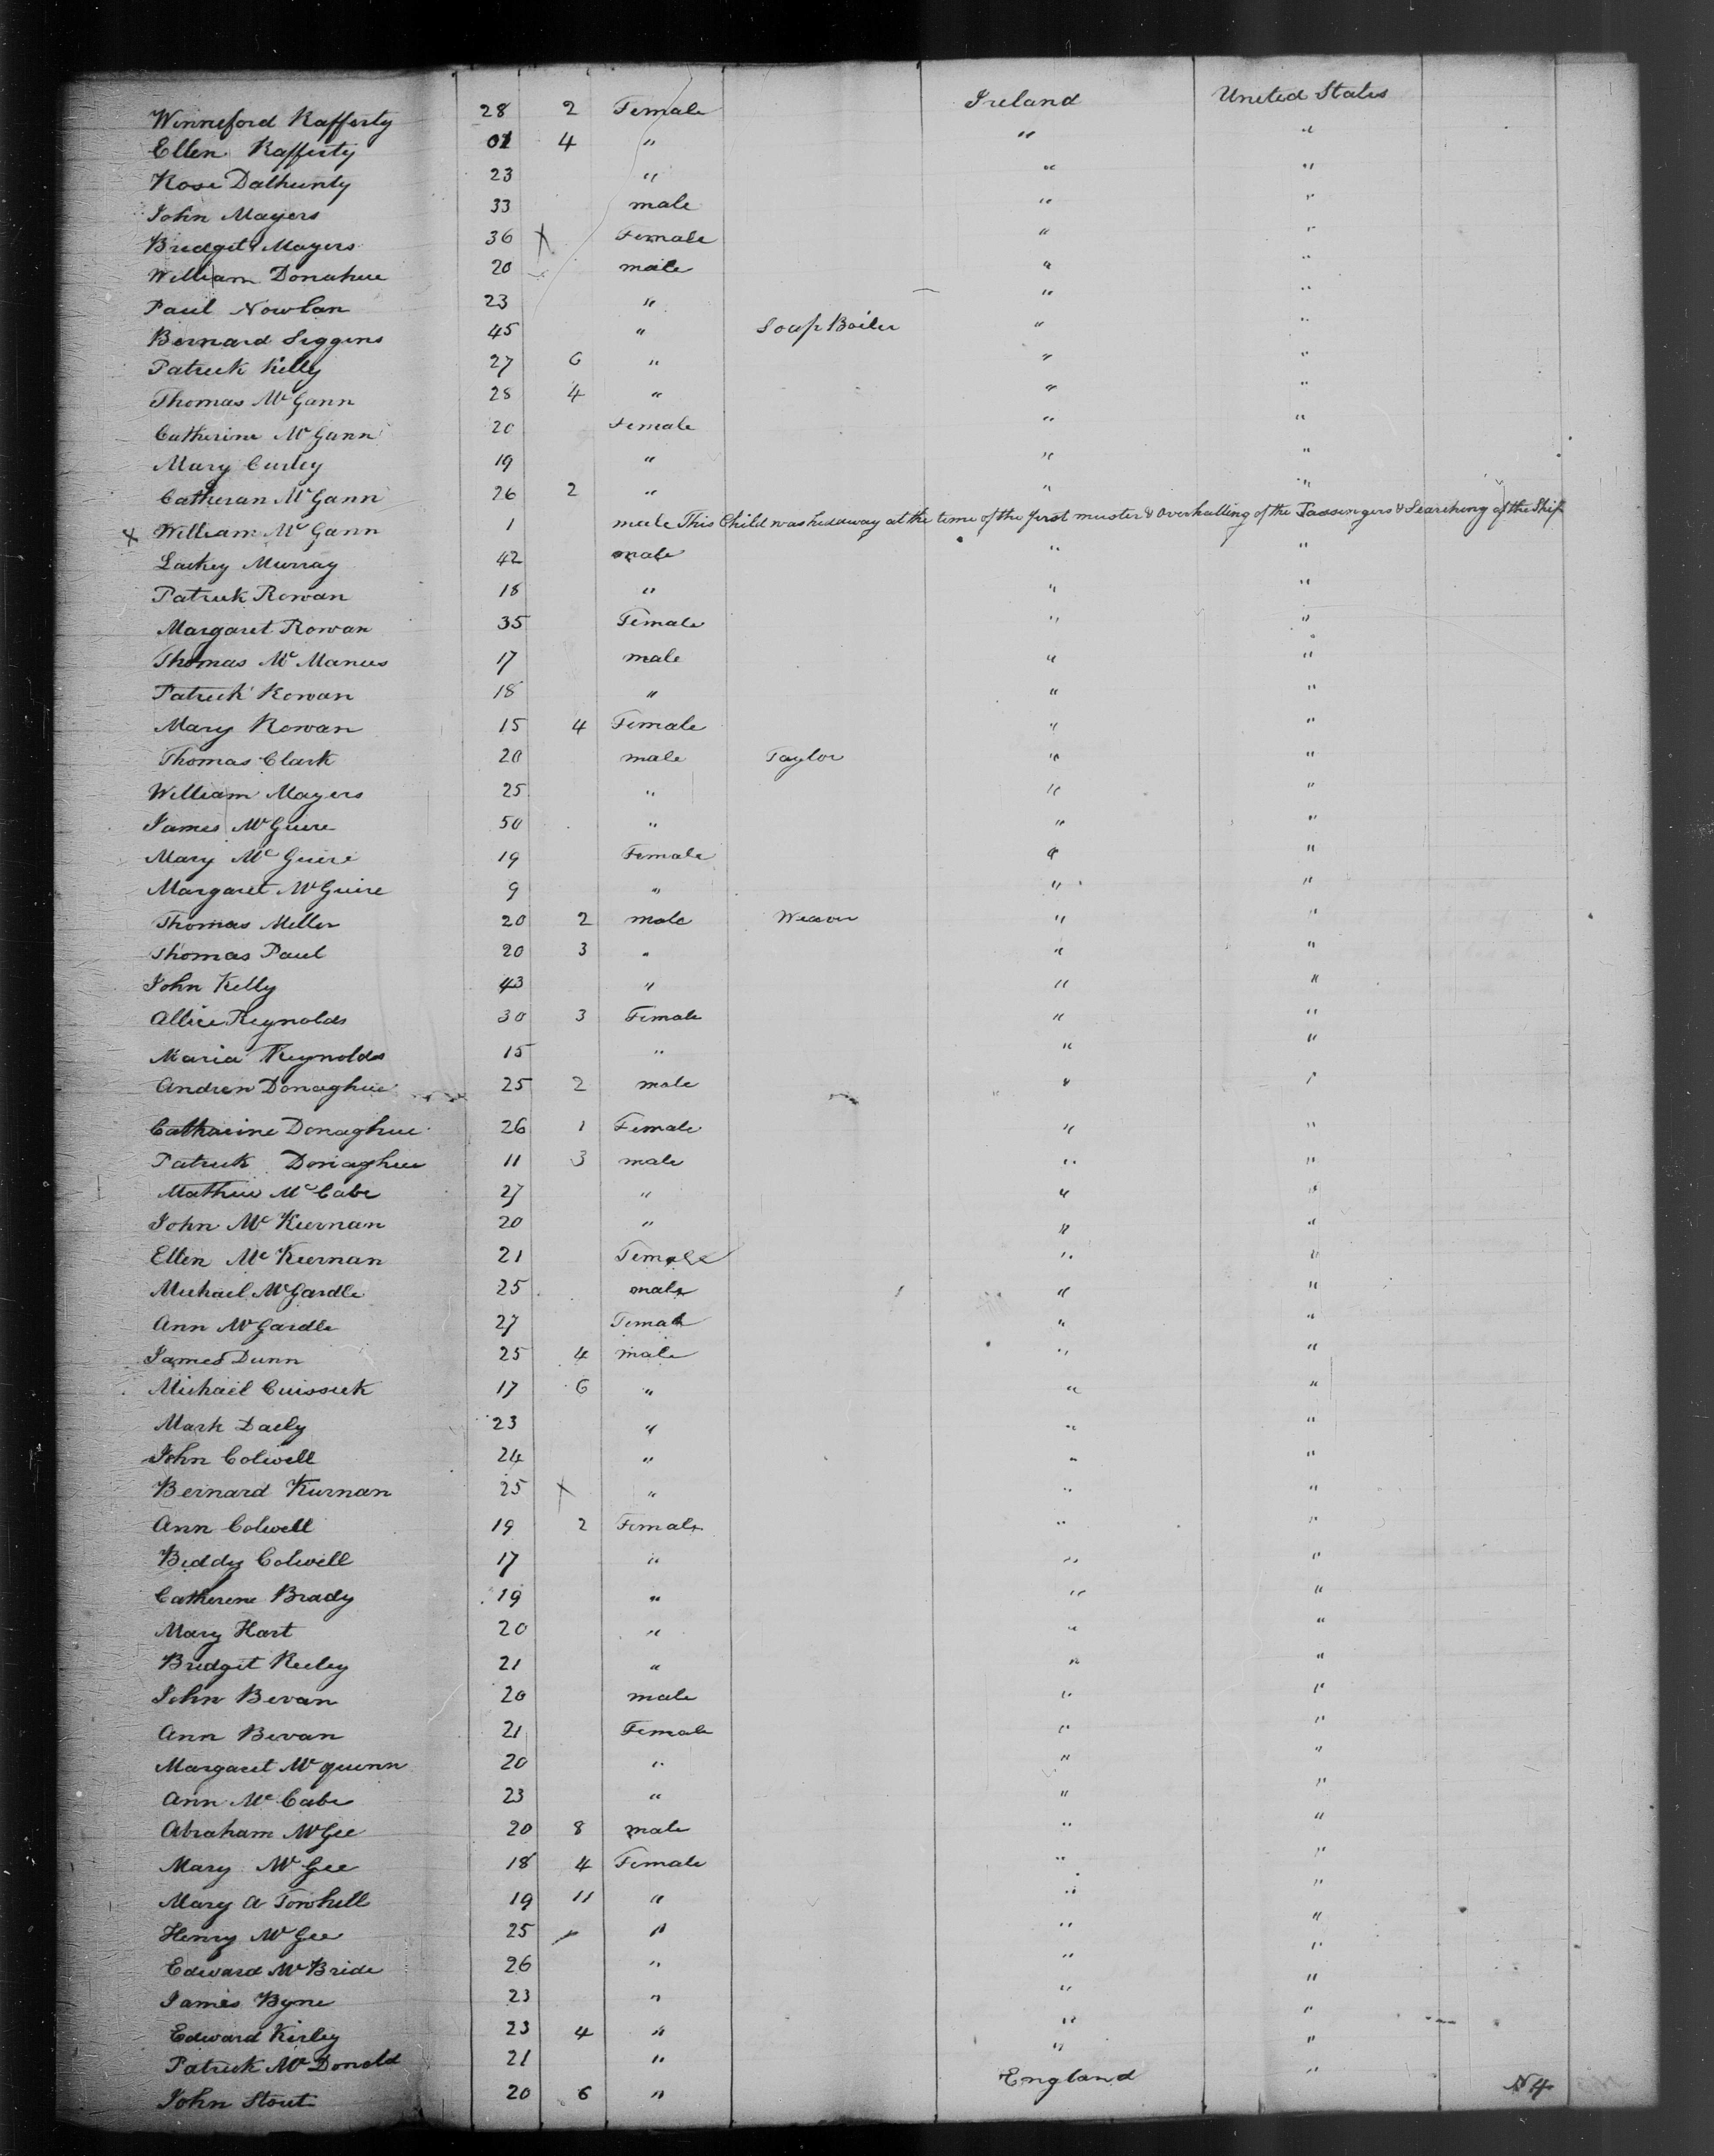 Winneford Rafferty 28 2 Female Ireland United States
Ellen Rafferty 01 4 " " "
Rose Dalhunty 23 " " "
John Mayers 33 male " "
Bridget Mayers 36 X Female " "
William Donahue 20 male " "
Paul Nowlan 23 " " "
Bernard Siggins 45 " Soap Boiler " "
Patrick Kelly 27 6 " " "
Thomas McGann 28 4 " " "
Catherine McGann 20 Female " "
Mary Curley 19 " " "
Catheran McGann 26 2 " " "
X William McGann 1 male This Child was hid away at the time of the first muster & Overhalling of the Passingers & Searching of the Ship
Lackey Murray 42 male " "
Patrick Rowan 18 " " "
Margaret Rowan 35 Female " "
Thomas McManus 17 male " "
Patrick Rowan 18 " " "
Mary Rowan 15 4 Female " "
Thomas Clark 20 male Taylor " "
William Mayers 25 " " "
James McGuire 50 " " "
Mary McGuire 19 Female " "
Margaret McGuire 9 " " "
Thomas Miller 20 2 male Weaver " "
Thomas Paul 20 3 " " "
John Kelly 43 " " "
Allice Reynolds 30 3 Female " "
Maria Reynolds 15 " " "
Andrew Donaghue 25 2 male " "
Catharine Donaghue 26 1 Female " "
Patrick Donaghue 11 3 male " "
Mathew McCabe 27 " " "
John McKiernan 20 " " "
Ellen McKiernan 21 Female " "
Michael McGardle 25 male " "
Ann McGardle 27 Female " "
James Dunn 25 4 male " "
Michael Cuissick 17 6 " " "
Mark Daely 23 " " "
John Colwell 24 " " "
Bernard Kurnan 25 X " " "
Ann Colwell 19 2 Female " "
Biddy Colwell 17 " " "
Catherene Brady 19 " " "
Mary Hart 20 " " "
Bridget Reeley 21 " " "
John Bevan 20 male " "
Ann Bevan 21 Female " "
Margaret McQuinn 20 " " "
Ann McCabe 23 " " "
Abraham McGee 20 8 male " "
Mary McGee 18 4 Female " "
Mary A Towhill 19 11 " " "
Henry McGee 25 " " "
Edward McBride 26 " " "
James Byne 23 " " "
Edward Kirley 23 4 " " "
Patrick McDonald 21 " " "
John Stout 20 6 " England "
N4